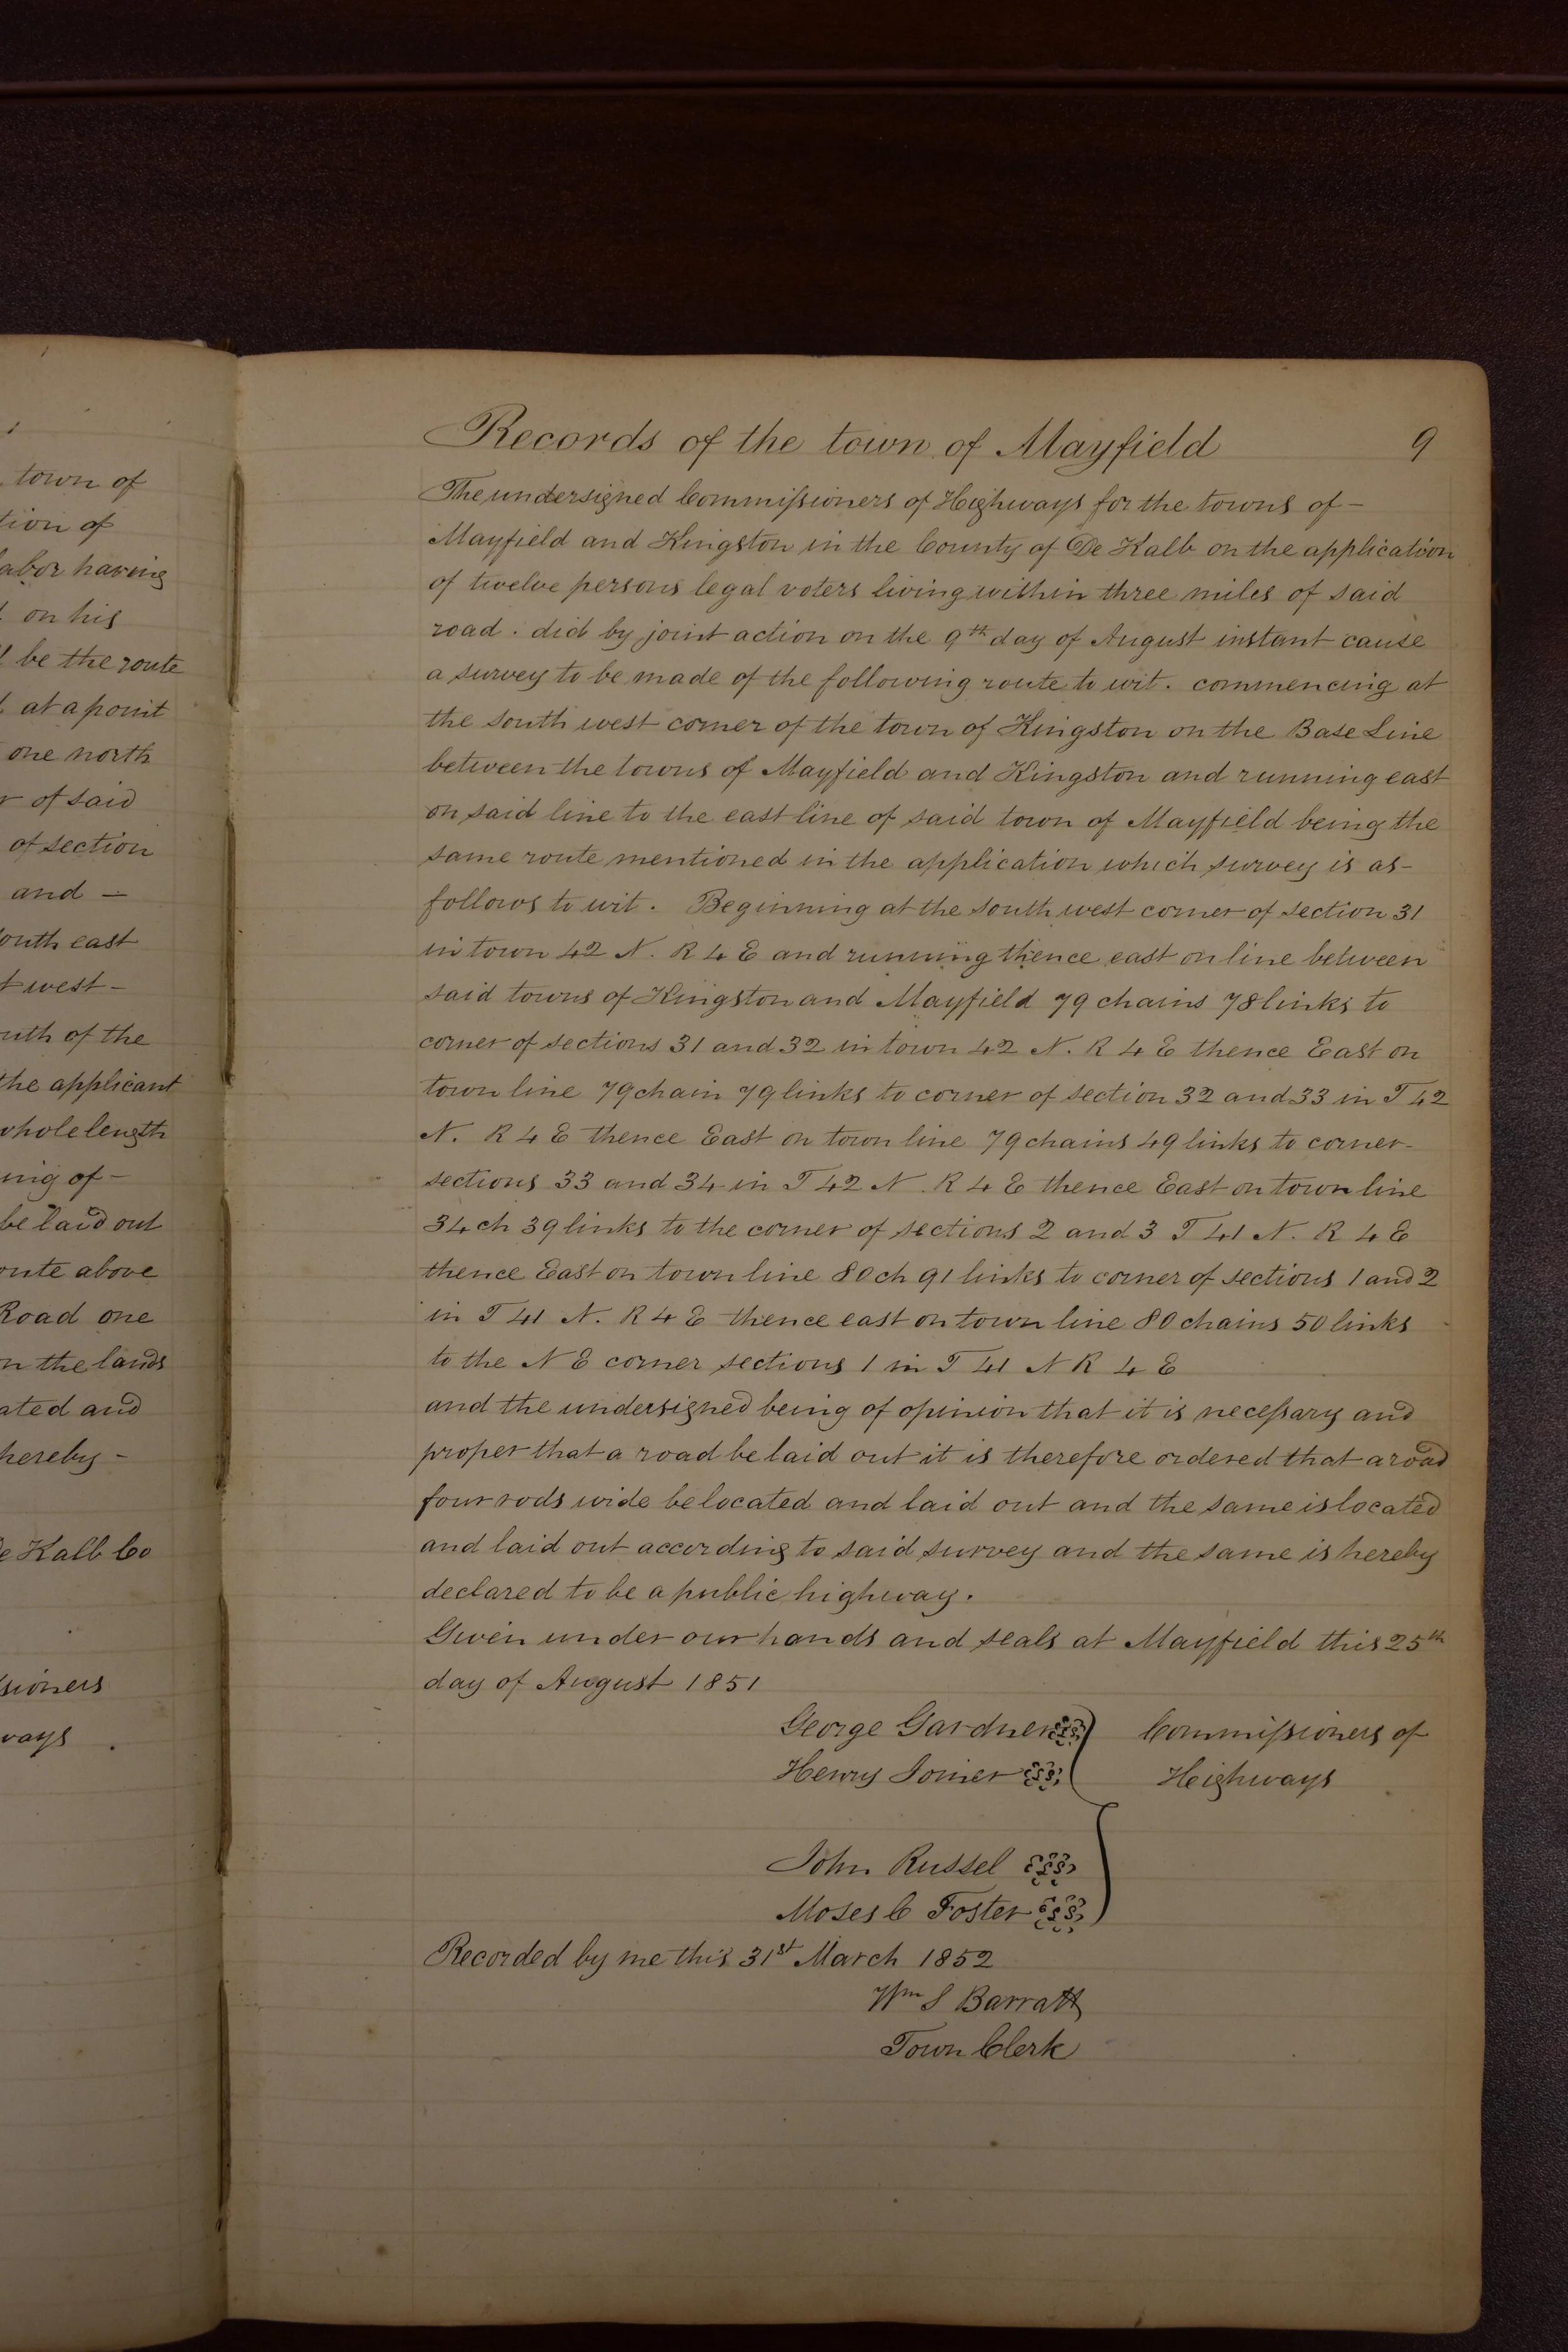 town of
tion of
abor having
on his
be the route
at a point
one north
of said
of section
and —
outh east
west –
uth of the
the applicant
whole length
ing of –
be laid out
oute above
Road one
on the lands
ated and
hereby –
De Kalb Co
sioners
ways .
Records of the town of Mayfield 9
The undersigned Commissioners of Highways for the towns of –
Mayfield and Kingston in the County of De Kalb on the application
of twelve persons legal voters living within three miles of said
road . did by joint action on the 9th day of August instant cause
a survey to be made of the following route to wit . commencing at
the south west corner of the town of Kingston on the Base Line
between the towns of Mayfield and Kingston and running east
on said line to the east line of said town of Mayfield being the
same route mentioned in the application which survey is as –
follows to wit . Beginning at the south west corner of section 31
in town 42 N. R 4 E and running thence east on line between
said towns of Kingston and Mayfield 79 chains 78 links to
corner of sections 31 and 32 in town 42 N. R 4 E thence East on
town line 79 chain 79 links to corner of section 32 and 33 in T 42
N. R 4 E thence East on town line 79 chains 49 links to corner –
sections 33 and 34 in T 42 N. R 4 E thence East on town line
34 ch 39 links to the corner of sections 2 and 3 T 41 N. R 4 E
thence East on town line 80 ch 91 links to corner of sections 1 and 2
in T 41 N. R 4 E thence east on town line 80 chains 50 links
to the N E corner sections 1 in T 41 N R 4 E
and the undersigned being of opinion that it is necessary and
proper that a road be laid out it is therefore ordered that a road
four rods wide be located and laid out and the same is located
and laid out according to said survey and the same is hereby
declared to be a public highway .
Given under our hands and seals at Mayfield this 25th
day of August 1851
George Gardner Commissioners of
Henry Joiner Heighways
John Russel
Moses C Foster
Recorded by me this 31st March 1852
Wm S Barratt
Town Clerk